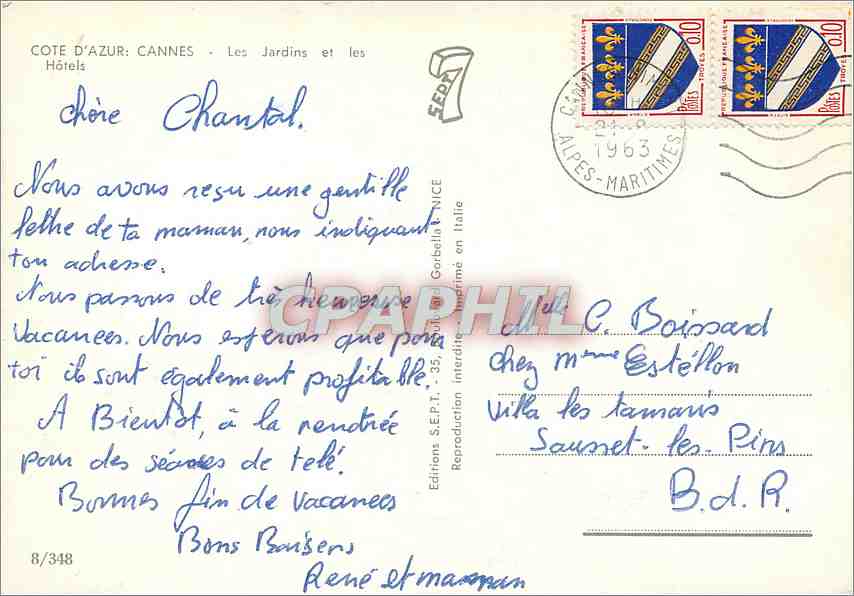 COTE D'AZUR: CANNES - Les Jardins et les
Hôtels
SEPT
RÉPUBLIQUE FRANÇAISE
0,10
TROYES
POSTES
RÉPUBLIQUE FRANÇAISE
0,10
TROYES
POSTES
1963
ALPES-MARITIMES
chère Chantal.
Nous avons reçu une gentille
lettre de ta maman, nous indiquant
ton adresse.
Nous passons de très heureuse
Vacances. Nous esperons que pour
toi ils sont également profitable.
A Bientot, à la rendrée
pour des séances de telé.
Bonnes fin de Vacances
Bons Baisers
René et maman
Editions S.E.P.T. - 35, Boulevard Gorbella - NICE
Reproduction interdite - Imprimé en Italie
CPAPHIL
Melle C. Boissard
chez mme Estéllon
Villa les tamaris
Sausset-les-Pins
B.d.R.
8/348